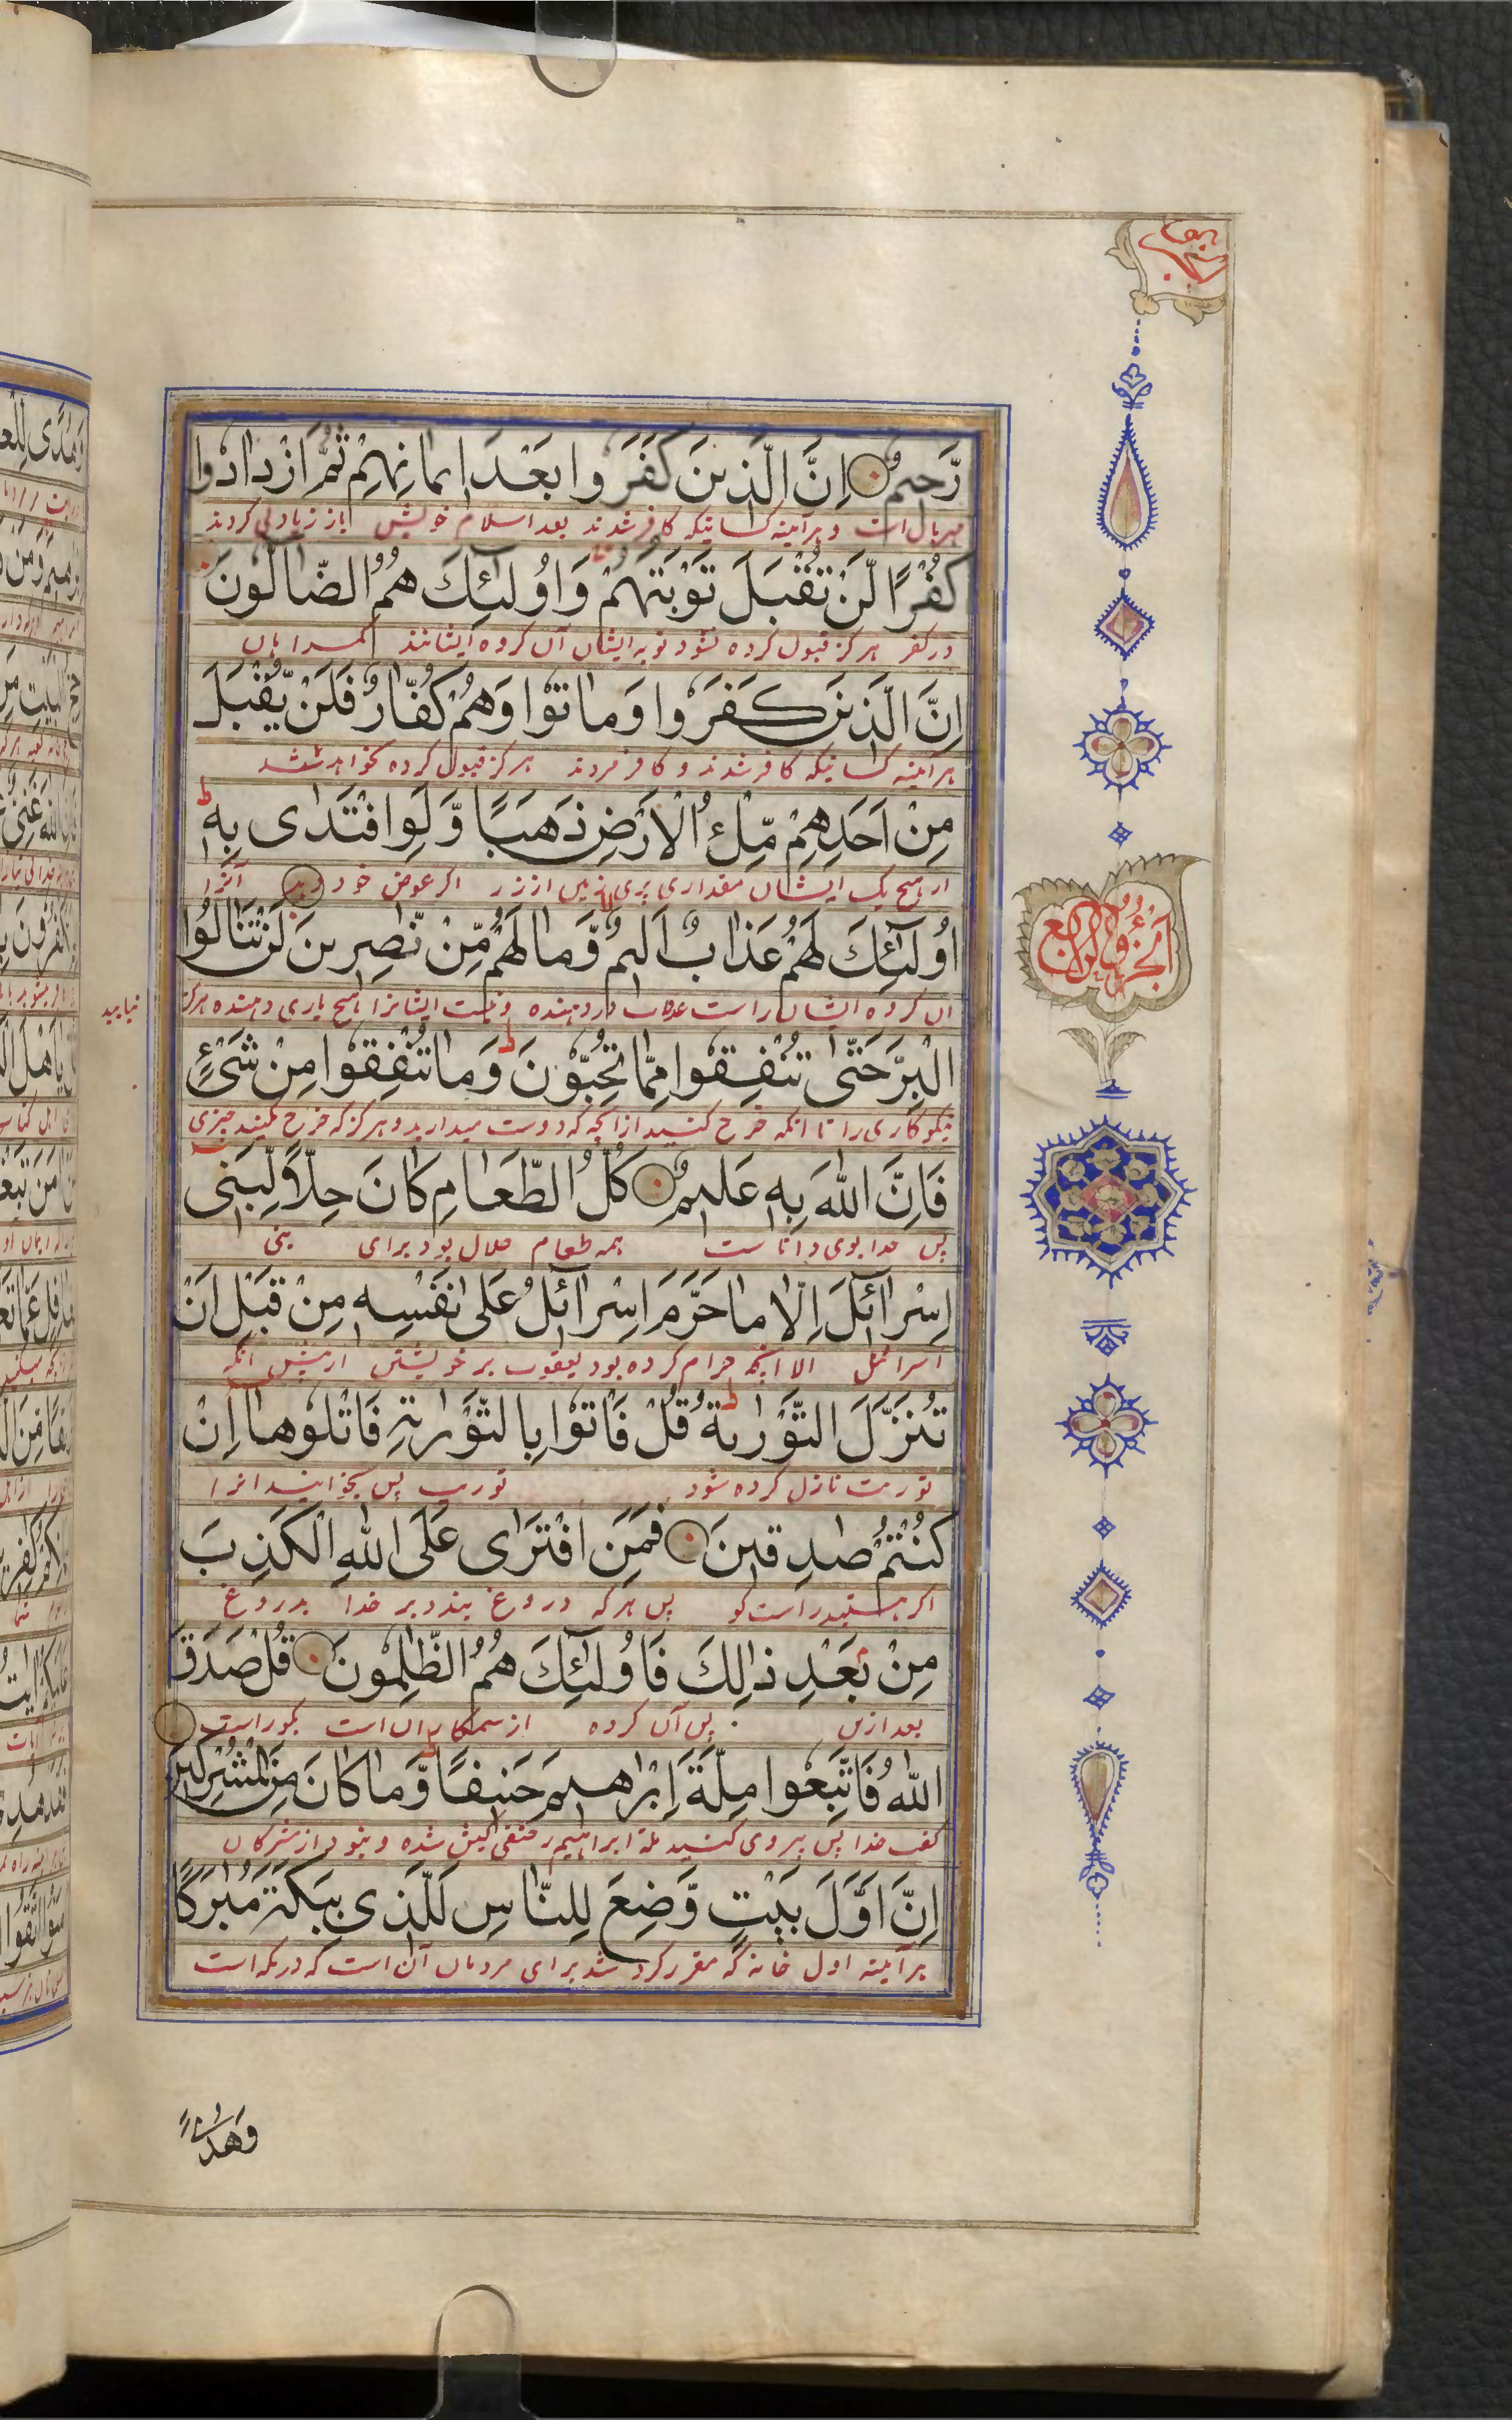 رَّحِیمٌ اِنَّ الَّذِینَ كَفَرُوا بَعْدَ اِیمَانِهِمْ ثُمَّ ازْدَادُوا
مهربان است و هر آینه کسانیکه کافر شدند بعد اسلام خویش باز زیادتی کردند
كُفْرًا لَّنْ تُقْبَلَ تَوْبَتُهُمْ وَاُولٰئِكَ هُمُ الضَّالُّونَ
در کفر هرگز قبول کرده نشود توبه ایشان آن گروه ایشانند گمراهان
اِنَّ الَّذِینَ كَفَرُوا وَمَاتُوا وَهُمْ كُفَّارٌ فَلَنْ یُّقْبَلَ
هر آینه کسانیکه کافر شدند و کافر مردند هرگز قبول کرده نخواهد شد
مِنْ اَحَدِهِمْ مِّلْءُ الْاَرْضِ ذَهَبًا وَّلَوِ افْتَدٰی بِهٖ ط
از هیچ یک ایشان مقداری پری زمین از زر اگر عوض خود دهد آنرا
اُولٰئِكَ لَهُمْ عَذَابٌ اَلِیمٌ وَّمَا لَهُمْ مِّنْ نّٰصِرِینَ لَنْ تَنَالُوا
آن گروه ایشان راست عذاب درد دهنده و نیست ایشانرا هیچ یاری دهنده هرگز
نیابید
الْبِرَّ حَتّٰی تُنْفِقُوا مِمَّا تُحِبُّونَ ط وَمَا تُنْفِقُوا مِنْ شَیْءٍ
نیکوکاری را تا آنکه خرج کنید از آنچه که دوست میدارید و هر گز که خرج کنید چیزی
فَاِنَّ اللّٰهَ بِهٖ عَلِیمٌ كُلُّ الطَّعَامِ كَانَ حِلًّا لِّبَنِی
پس خدا بوی داناست همه طعام حلال بود برای بنی
اِسْرَآئِلَ اِلَّا مَا حَرَّمَ اِسْرَآئِلُ عَلٰی نَفْسِهٖ مِنْ قَبْلِ اَنْ
اسرائیل الا آنچه حرام کرده بود یعقوب بر خویشتن از پیش آنکه
تُنَزَّلَ التَّوْرٰیةُ ط قُلْ فَاْتُوا بِالتَّوْرٰیةِ فَاتْلُوهَا اِنْ
توریت نازل کرده شود توریت پس بخوانید انرا
كُنْتُمْ صٰدِقِینَ فَمَنِ افْتَرٰی عَلَی اللّٰهِ الْكَذِبَ
اگر هستید راست گو پس هر که دروغ بندد بر خدا بدروغ
مِنْ بَعْدِ ذٰلِكَ فَاُولٰئِكَ هُمُ الظّٰلِمُونَ قُلْ صَدَقَ
بعد ازین پس آن گروه از ستمکاران است بگو راست
اللّٰهُ فَاتَّبِعُوا مِلَّةَ اِبْرٰهِیمَ حَنِیفًا ط وَّمَا كَانَ مِنَ الْمُشْرِكِینَ
گفت خدا پس پیروی کنید ملة ابراهیم حنفی کیش شده و نبود از مشرکان
اِنَّ اَوَّلَ بَیْتٍ وُّضِعَ لِلنَّاسِ لَلَّذِی بِبَكَّةَ مُبٰرَكًا
هر آینه اول خانه که مقرر کرد شد برای مردمان آن است که در مکه است
الجزؤ الرابع
وَهُدًی